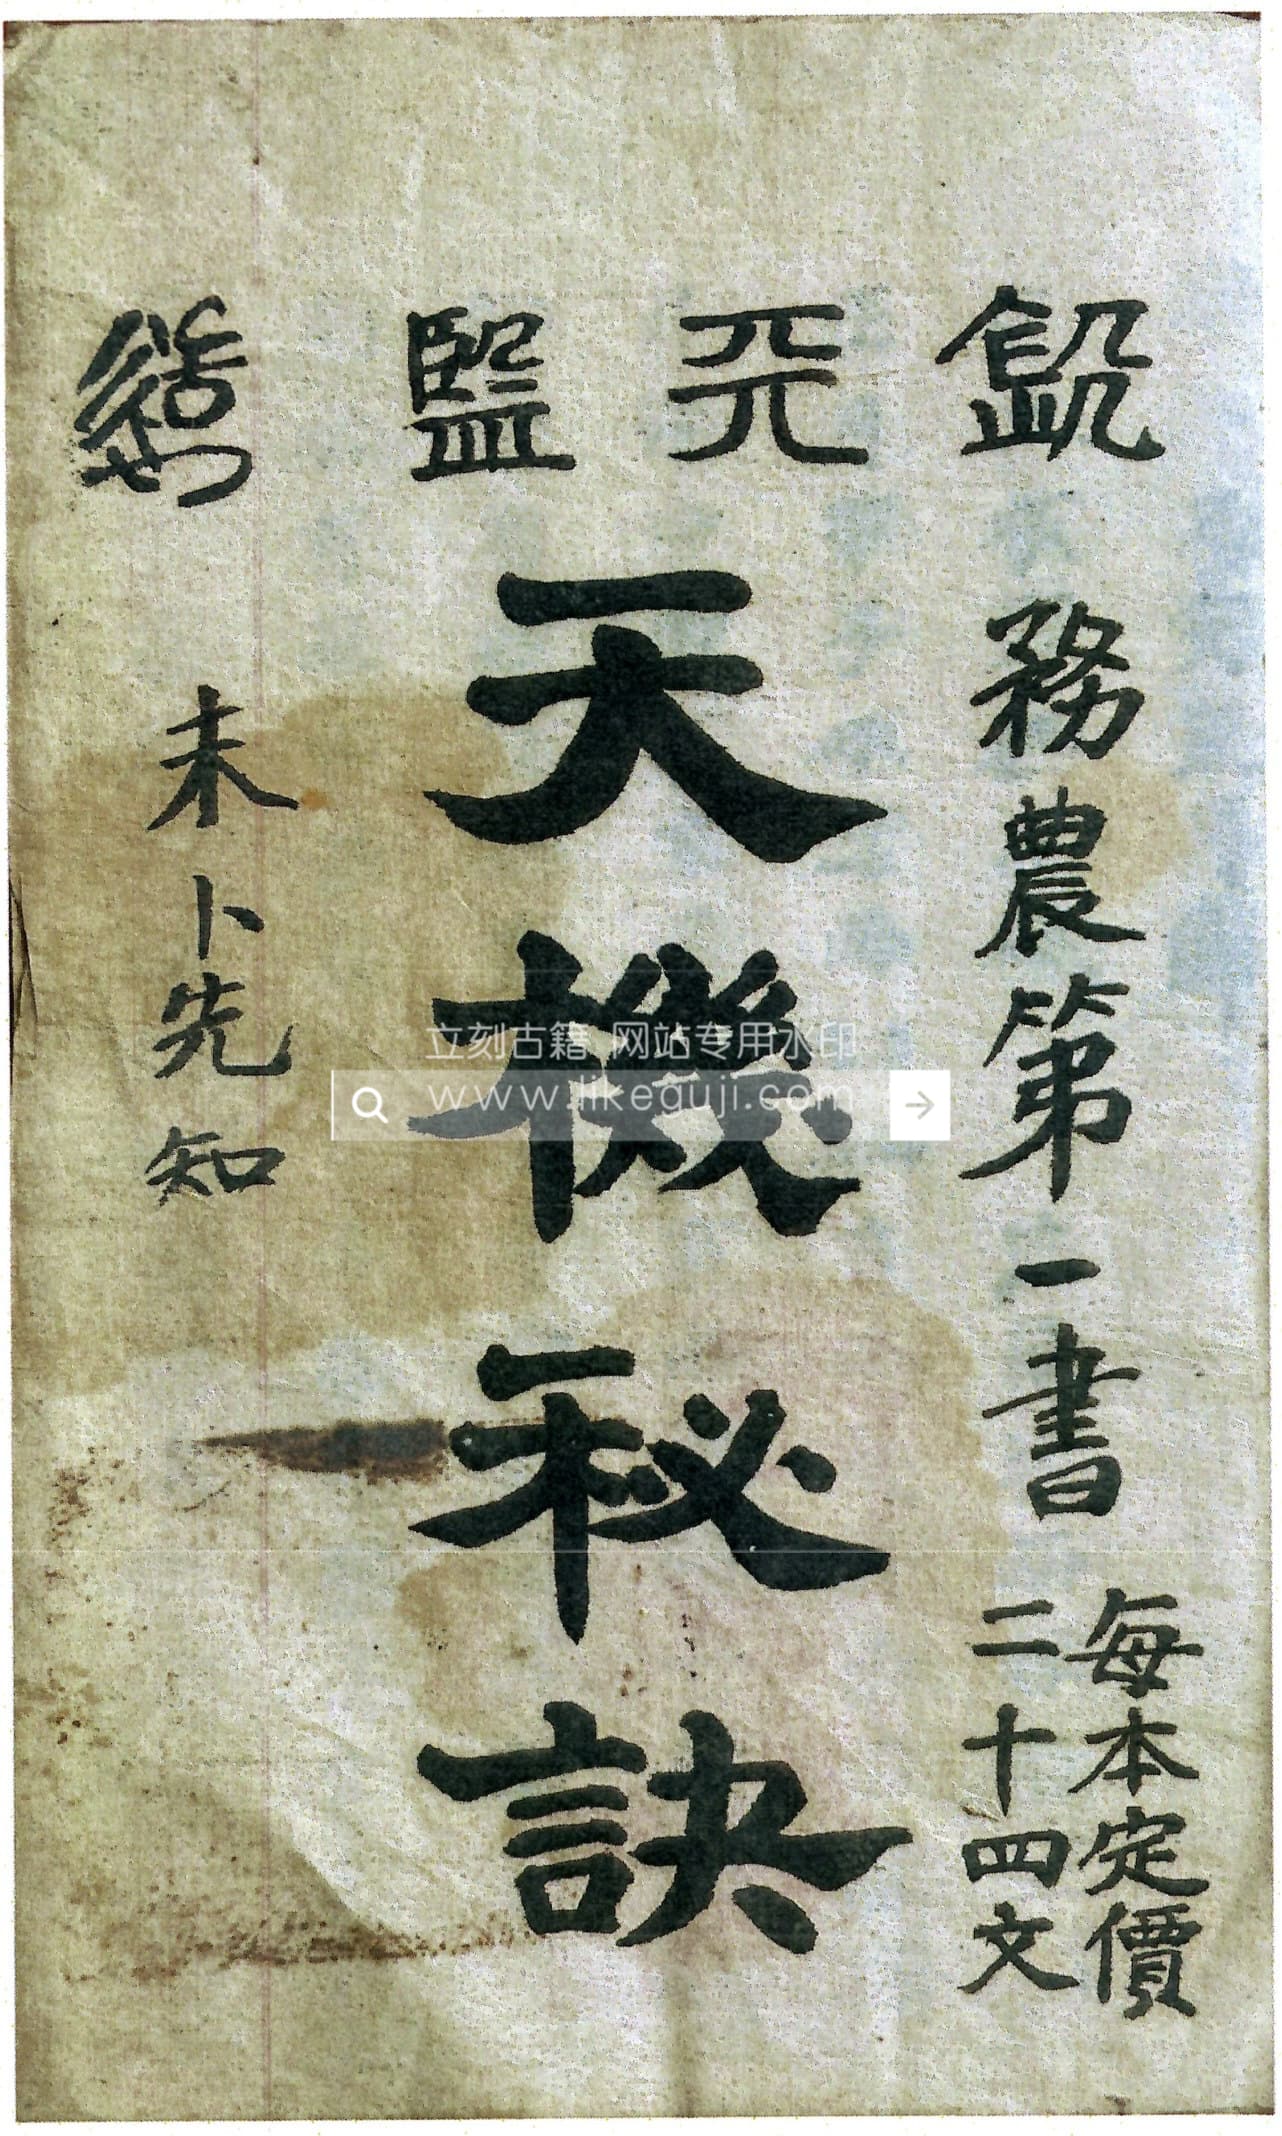 監
務農第一書
每本定價
二十四文
天機秘訣
未卜先知
立刻古籍 网站专用水印
www.likeguji.com